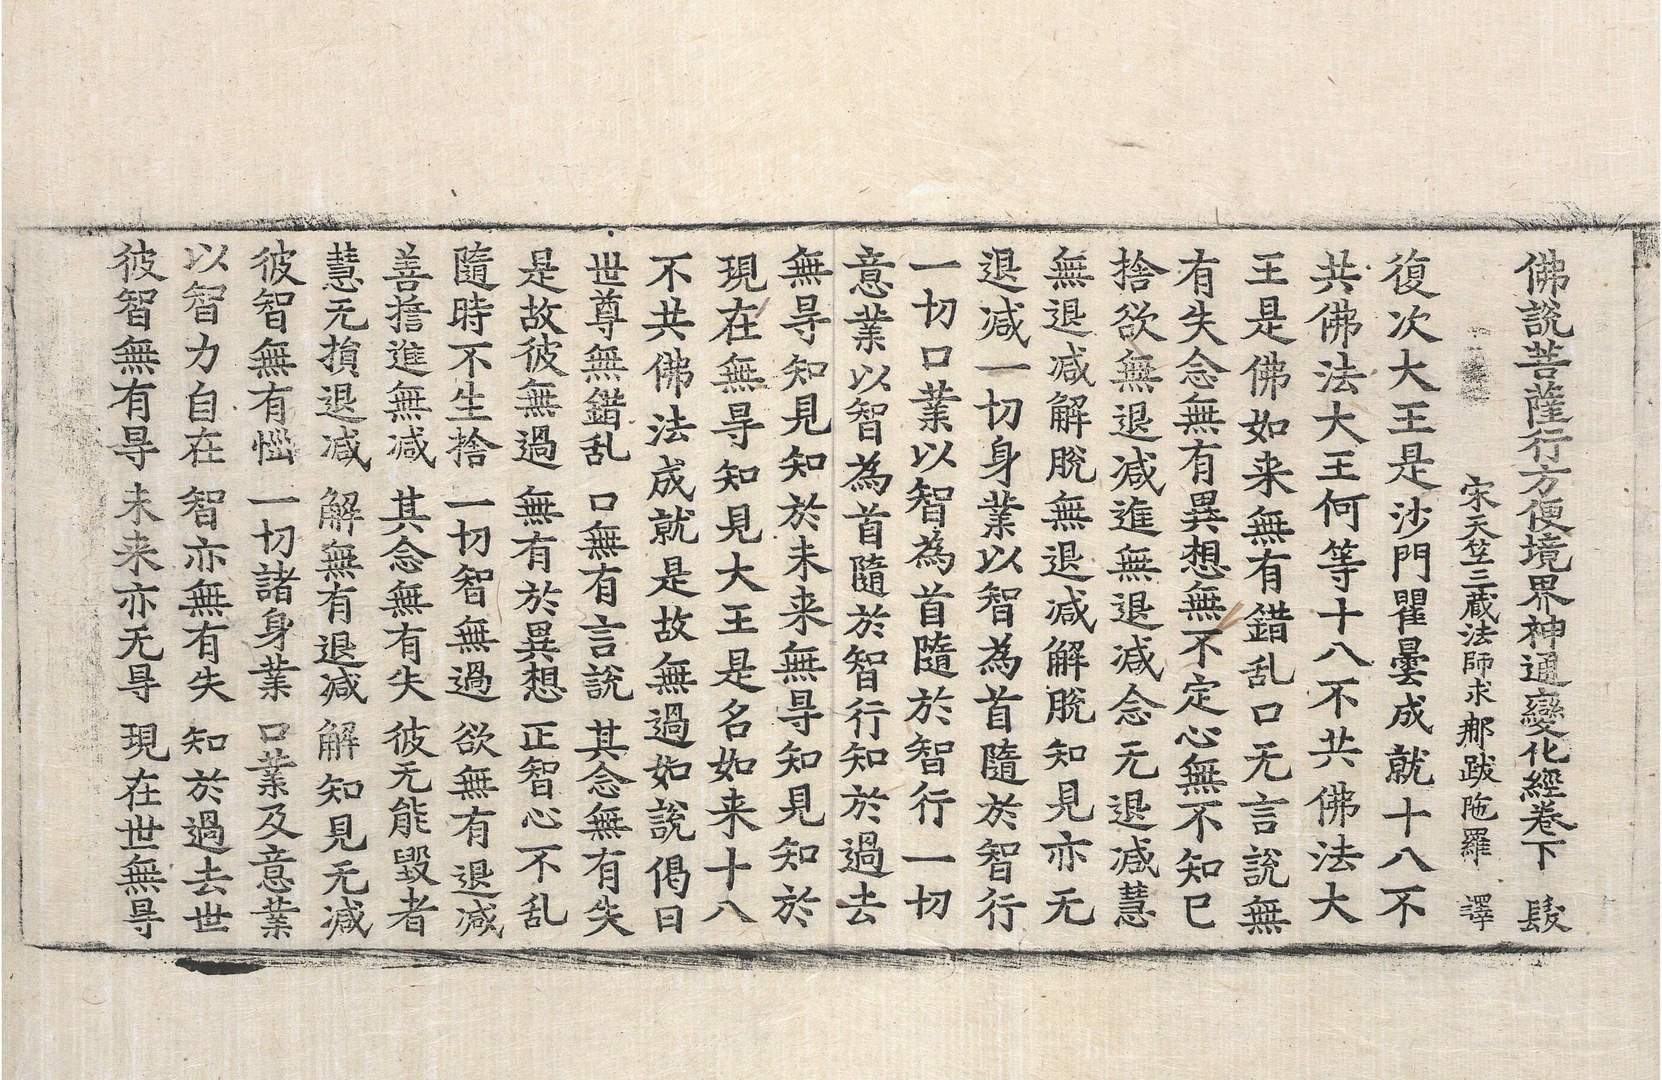 佛說菩薩行方便境界神通變化經卷下 髮
宋天竺三藏法師求那跋陁羅 譯
復次大王是沙門瞿曇成就十八不
共佛法大王何等十八不共佛法大
王是佛如来無有錯乱口无言說無
有失念無有異想無不定心無不知已
捨欲無退减進無退减念无退减慧
無退减解脫無退减解脫知見亦无
退减一切身業以智為首隨於智行
一切口業以智為首隨於智行一切
意業以智為首隨於智行知於過去
無㝵知見知於未来無㝵知見知於
現在無㝵知見大王是名如来十八
不共佛法成就是故無過如說偈曰
世尊無錯乱 口無有言說 其念無有失
是故彼無過 無有於異想 正智心不乱
隨時不生捨 一切智無過 欲無有退减
善擔進無减 其念無有失 彼无能毀者
慧无損退减 解無有退减 解知見无减
彼智無有惱 一切諸身業 口業及意業
以智力自在 智亦無有失 知於過去世
彼智無有㝵 未来亦无㝵 現在世無㝵